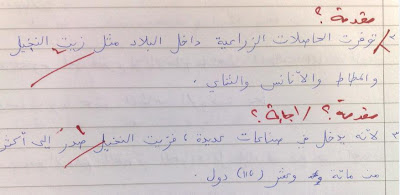 مقدمة؟
٢ توفرت الحاصلات الزراعية داخل البلاد مثل زيت النخيل
والمطاط والأناناس والشاي .
مقدمة؟ / إجابة؟
٣ لأنه يدخل في صناعات عديدة ، فزيت النخيل صدر إلى أكثر
من مائة وستة عشر (١١٦) دول .